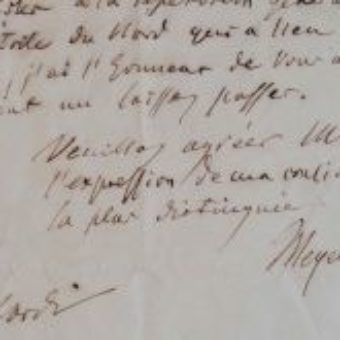 à la répétition géné
toile du Nord qui a lieu
j'ai l'honneur de vous a
un laissez passer.
Veuillez agréer M
l'expression de ma consi
la plus distinguée
Meye